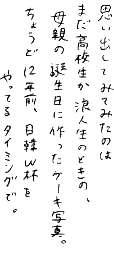 思い出してみてみたのは
まだ高校生か浪人生のときの、
母親の誕生日に作ったケーキ写真。
ちょうど12年前、日韓W杯を
やってるタイミングで。